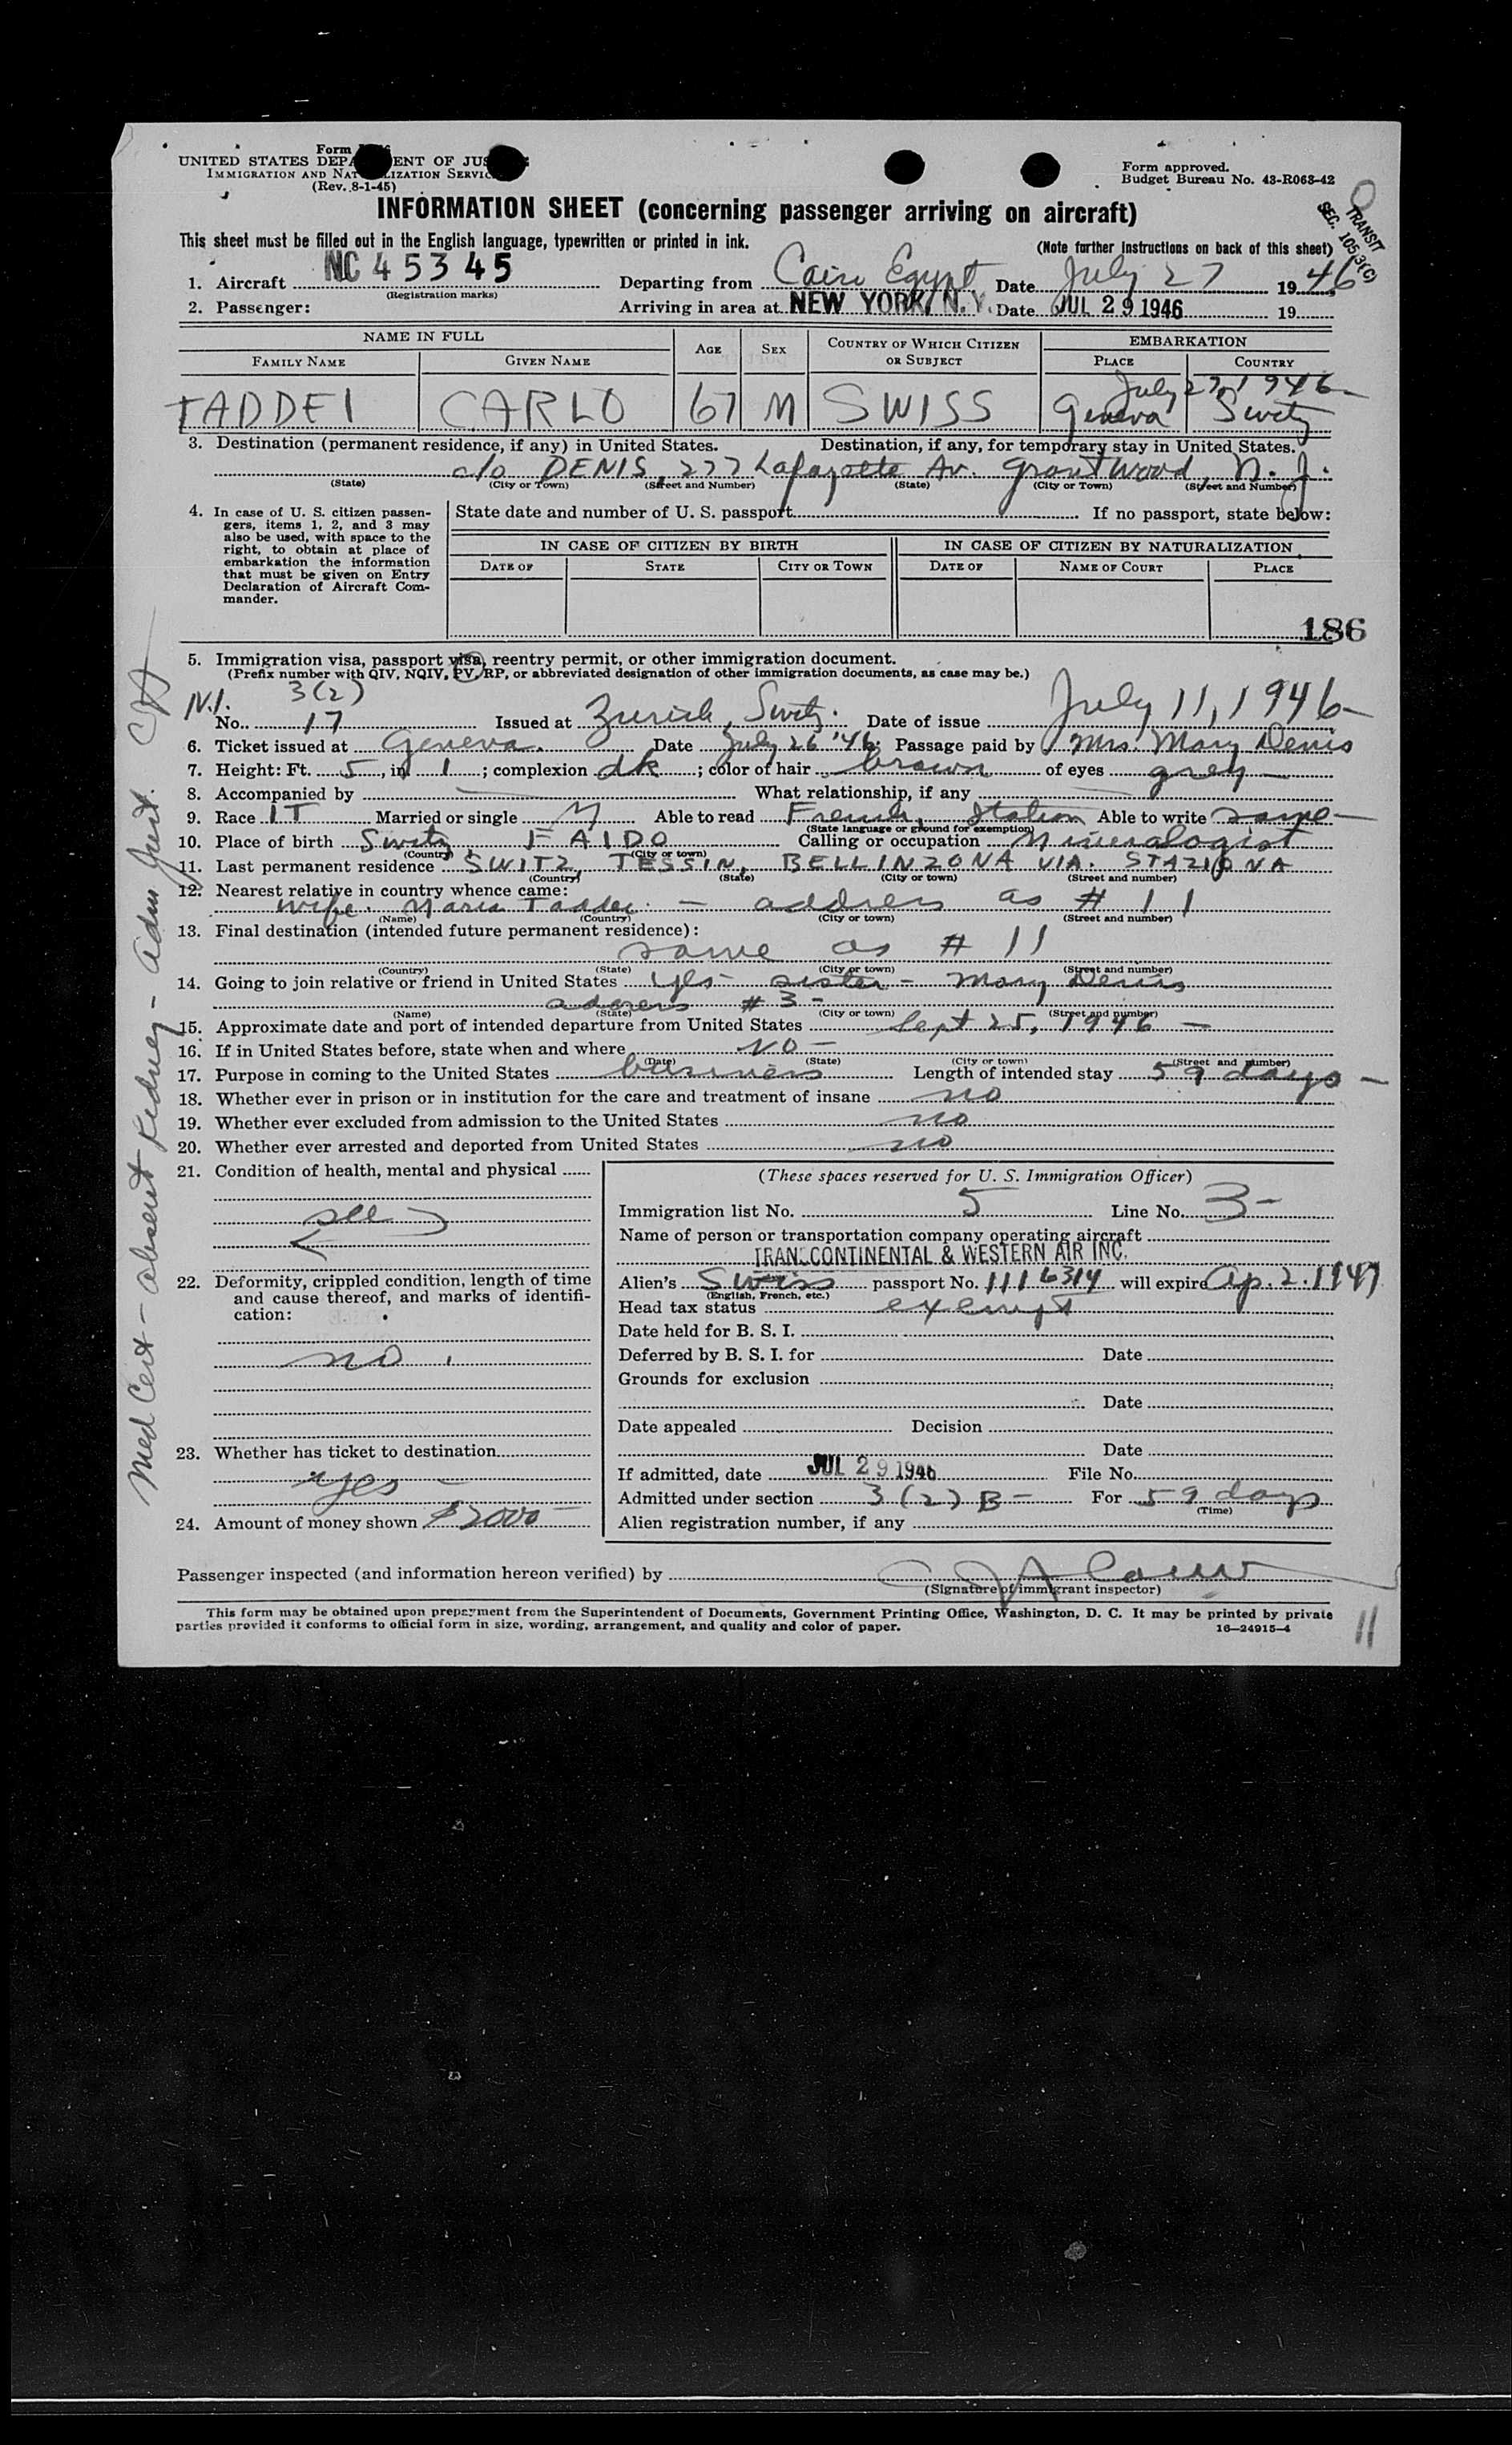 Form
UNITED STATES DEPA ENT OF JUS
IMMIGRATION AND NAT LIZATION SERVIC
(Rev. 8-1-45)
Form approved.
Budget Bureau No. 43-R063-42
INFORMATION SHEET (concerning passenger arriving on aircraft)
TRANSIT
SEC. 105 3(C)
This sheet must be filled out in the English language, typewritten or printed in ink. (Note further instructions on back of this sheet)
1. Aircraft NC 45345 Departing from Cairo Egypt Date July 27 1946
(Registration marks)
2. Passenger: Arriving in area at NEW YORK, N.Y. Date JUL 29 1946 19
NAME IN FULL AGE SEX COUNTRY OF WHICH CITIZEN OR SUBJECT EMBARKATION
FAMILY NAME GIVEN NAME PLACE COUNTRY
July 27, 1946
TADDEI CARLO 67 M SWISS Geneva Switz
3. Destination (permanent residence, if any) in United States. Destination, if any, for temporary stay in United States.
c/o DENIS, 277 Lafayette Av. Grantwood, N. J.
(State) (City or Town) (Street and Number) (State) (City or Town) (Street and Number)
4. In case of U. S. citizen passengers, items 1, 2, and 3 may also be used, with space to the right, to obtain at place of embarkation the information that must be given on Entry Declaration of Aircraft Commander.
State date and number of U. S. passport If no passport, state below:
IN CASE OF CITIZEN BY BIRTH IN CASE OF CITIZEN BY NATURALIZATION
DATE OF STATE CITY OR TOWN DATE OF NAME OF COURT PLACE
186
5. Immigration visa, passport visa, reentry permit, or other immigration document.
(Prefix number with QIV, NQIV, PV, RP, or abbreviated designation of other immigration documents, as case may be.)
N.I. 3(2)
No. 17 Issued at Zurich, Switz. Date of issue July 11, 1946
6. Ticket issued at Geneva. Date July 26 '46 Passage paid by Mrs. Mary Denis
7. Height: Ft. 5, in. 1; complexion dk; color of hair brown of eyes grey
8. Accompanied by — What relationship, if any —
9. Race IT Married or single M Able to read French, Italian Able to write same
(State language or ground for exemption)
10. Place of birth Switz, FAIDO Calling or occupation Mineralogist
(Country) (City or town)
11. Last permanent residence SWITZ, TESSIN, BELLINZONA VIA. STAZIONA
(Country) (State) (City or town) (Street and number)
12. Nearest relative in country whence came:
wife. Maria Taddei — address as # 11
(Name) (Country) (City or town) (Street and number)
13. Final destination (intended future permanent residence):
same as # 11
(Country) (State) (City or town) (Street and number)
14. Going to join relative or friend in United States yes - sister - Mary Denis
address # 3 -
(Name) (State) (City or town) (Street and number)
15. Approximate date and port of intended departure from United States Sept 25, 1946 —
16. If in United States before, state when and where NO —
(Date) (State) (City or town) (Street and number)
17. Purpose in coming to the United States business Length of intended stay 59 days —
18. Whether ever in prison or in institution for the care and treatment of insane no
19. Whether ever excluded from admission to the United States no
20. Whether ever arrested and deported from United States no
21. Condition of health, mental and physical
see
22. Deformity, crippled condition, length of time and cause thereof, and marks of identification:
no
23. Whether has ticket to destination
yes —
24. Amount of money shown $2000 —
(These spaces reserved for U. S. Immigration Officer)
Immigration list No. 5 Line No. 3 -
Name of person or transportation company operating aircraft
TRANSCONTINENTAL & WESTERN AIR INC.
Alien's Swiss passport No. 1116314 will expire Ap. 2. 1947
(English, French, etc.)
Head tax status exempt
Date held for B. S. I.
Deferred by B. S. I. for Date
Grounds for exclusion
Date
Date appealed Decision
Date
If admitted, date JUL 29 1946 File No.
Admitted under section 3(2) B - For 59 days
(Time)
Alien registration number, if any
Passenger inspected (and information hereon verified) by
(Signature of immigrant inspector)
This form may be obtained upon prepayment from the Superintendent of Documents, Government Printing Office, Washington, D. C. It may be printed by private
parties provided it conforms to official form in size, wording, arrangement, and quality and color of paper. 16—24915-4
11
Med Cert - absent Kidney - Adm